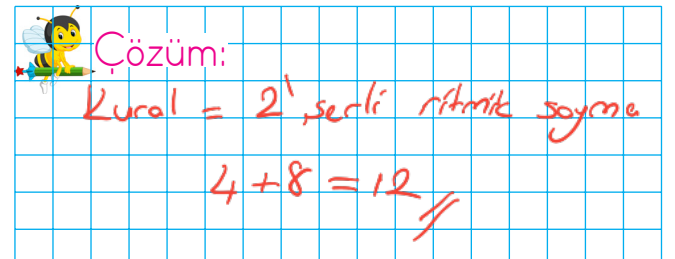 Çözüm:
Kural = 2'şerli ritmik sayma
4 + 8 = 12